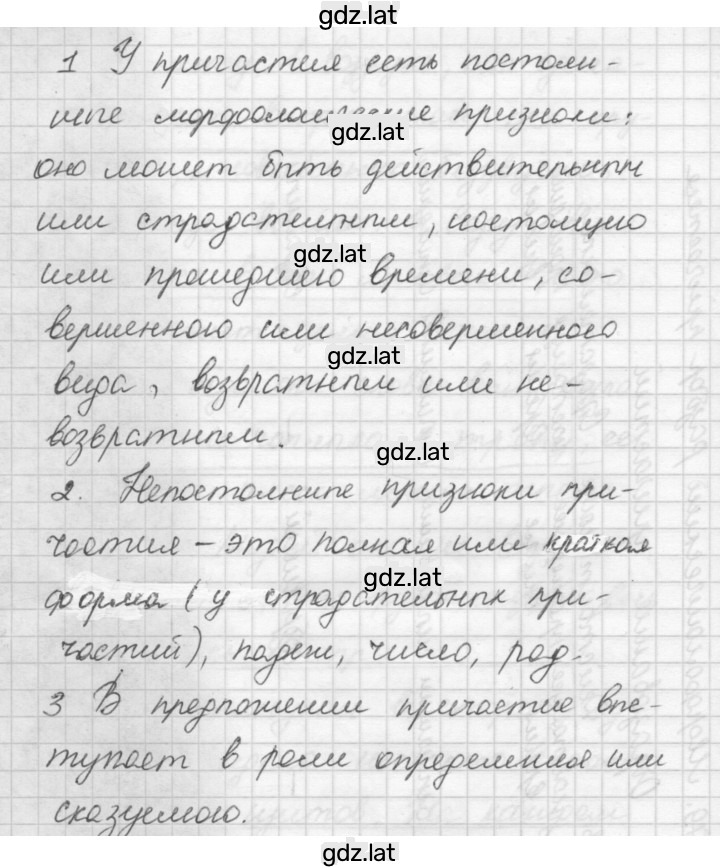 gdz.lat
1 У причастия есть постоян-
ные морфологические признаки:
gdz.lat
оно может быть действительным
или страдательным, настоящего
gdz.lat
или прошедшего времени, со-
вершенного или несовершенного
gdz.lat
вида, возвратным или не-
возвратным.
gdz.lat
2. Непостоянные признаки при-
частия – это полная или краткая
gdz.lat
форма (у страдательных при-
частий), падеж, число, род.
3 В предложении причастие выс-
gdz.lat
тупает в роли определения или
сказуемого.
gdz.lat